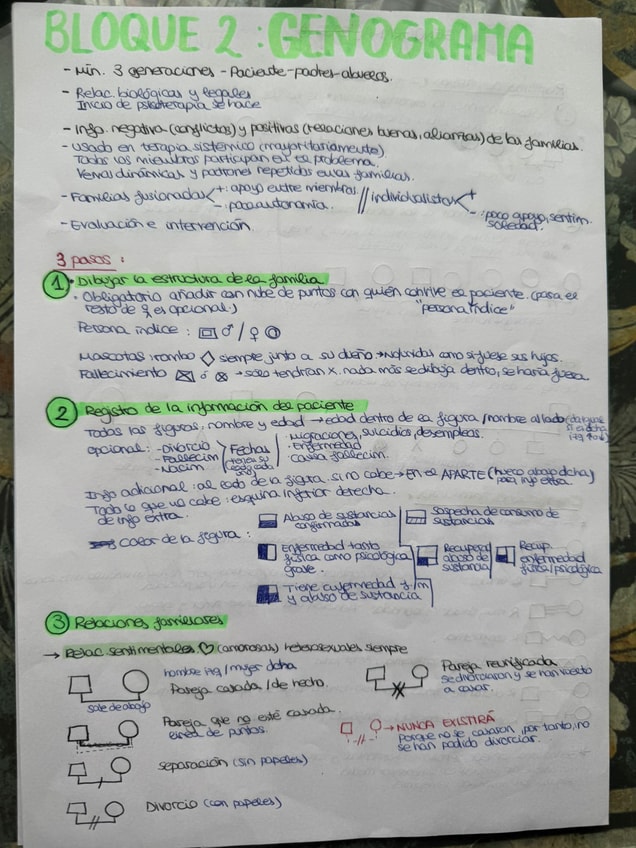 BLOQUE 2: GENOGRAMA
- Mín. 3 generaciones - Paciente - padres - abuelos.
- Relac. biológicas y legales
Inicio de psicoterapia se hace
- Info. negativa (conflictos) y positivas (relaciones buenas, alianzas) de las familias.
- usado en terapia sistémica (mayoritariamente)
Todos los miembros participan en el problema.
Ver las dinámicas y patrones repetidos en las familias.
- Familias fusionadas < + : apoyo entre miembros // individualistas < +
- poca autonomía. - : poco apoyo, sentim. soledad.
- Evaluación e intervención.
3 pasos :
① · Dibujar la estructura de la familia
· Obligatorio añadir con nube de puntos con quién convive el paciente. (para el
resto de es opcional) "persona índice"
Persona índice : ♂ / ♀
Mascotas : rombo ◇ siempre junto a su dueño → No unidas como si fuese sus hijos.
Fallecimiento ó → sólo tendrían x. nada más se dibuja dentro, se haría fuera.
② Registro de la información del paciente
Todas las figuras, nombre y edad → edad dentro de la figura / nombre al lado
opcional : - Divorcio
- Fallecim.
- Nacim.
Fechas
· Migraciones, suicidios, desempleos.
· Enfermedad
· Causa fallecim.
Info adicional : al lado de la figura. si no cabe → En el APARTE (hueco abajo dcha) para info extra.
Todo lo que no cabe : esquina inferior derecha.
de info extra.
Color de la figura :
Abuso de sustancias
confirmadas
Sospecha de consumo de
sustancias
Enfermedad tanto
física como psicológica
grave.
Recupera
abuso de
sustancia
Recup.
enfermedad
física/psicológica
Tiene enfermedad f./m
y abuso de sustancia
③ Relaciones familiares
→ Relac. sentimentales ♡ (amorosas) heterosexuales siempre
hombre izq / mujer dcha
Pareja casada / de hecho.
sale de abajo
Pareja reunificada
se divorciaron y se han vuelto
a casar.
Pareja que no esté casada.
línea de puntos.
→ NUNCA EXISTIRÁ
porque no se casaron, por tanto, no
se han podido divorciar.
separación (sin papeles)
Divorcio (con papeles)